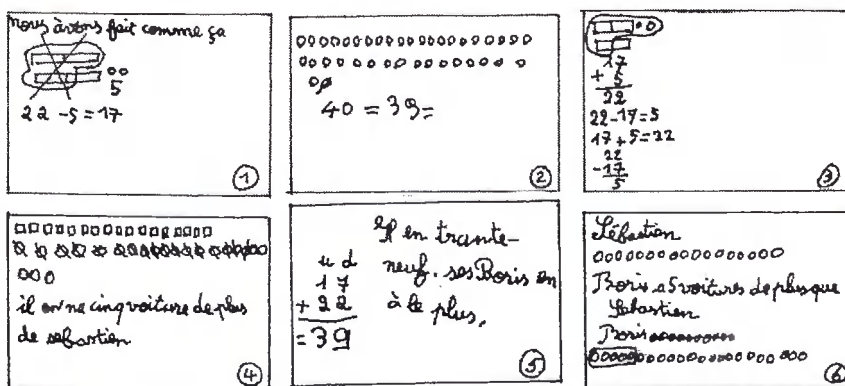 nous avons fait comme ça
5
22 - 5 = 17
1
40 = 39 =
2
17
+ 5
22
22 - 17 = 5
17 + 5 = 22
22
- 17
5
3
il on ne cinq voiture de plus
de sebastien
4
Il en trante-
neuf. ses Boris en
à le plus.
u d
17
+ 22
= 39
5
Sébastien
Boris a 5 voitures de plus que
Sébastien
Boris
6